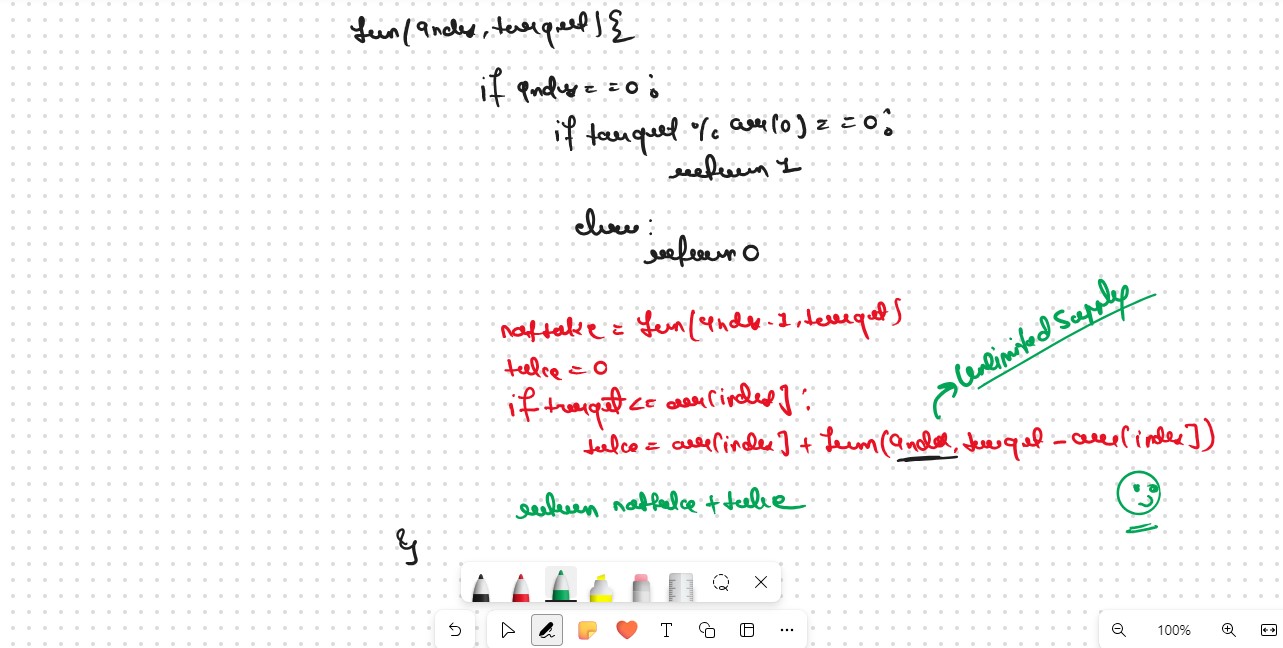 fun(index, target){
if index == 0:
if target % arr[0] == 0:
return 1
else:
return 0
nottake = fun(index-1, target)
take = 0
if target <= arr[index]:
take = arr[index] + fun(index, target - arr[index])
Unlimited Supply
return nottake + take
}
T
100%